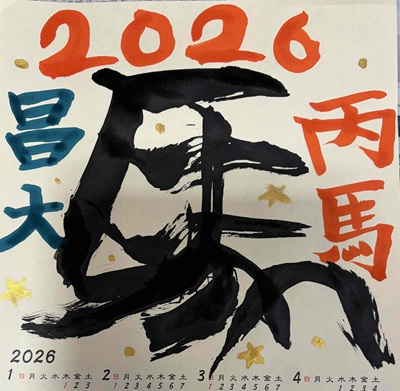 2026
丙馬
馬
昌大
2026
1 日 月 火 水 木 金 土 2 日 月 火 水 木 金 土 3 日 月 火 水 木 金 土 4 日 月 火 水 木 金 土
1 2 3 1 2 3 4 5 6 7 1 2 3 4 5 6 7 1 2 3 4